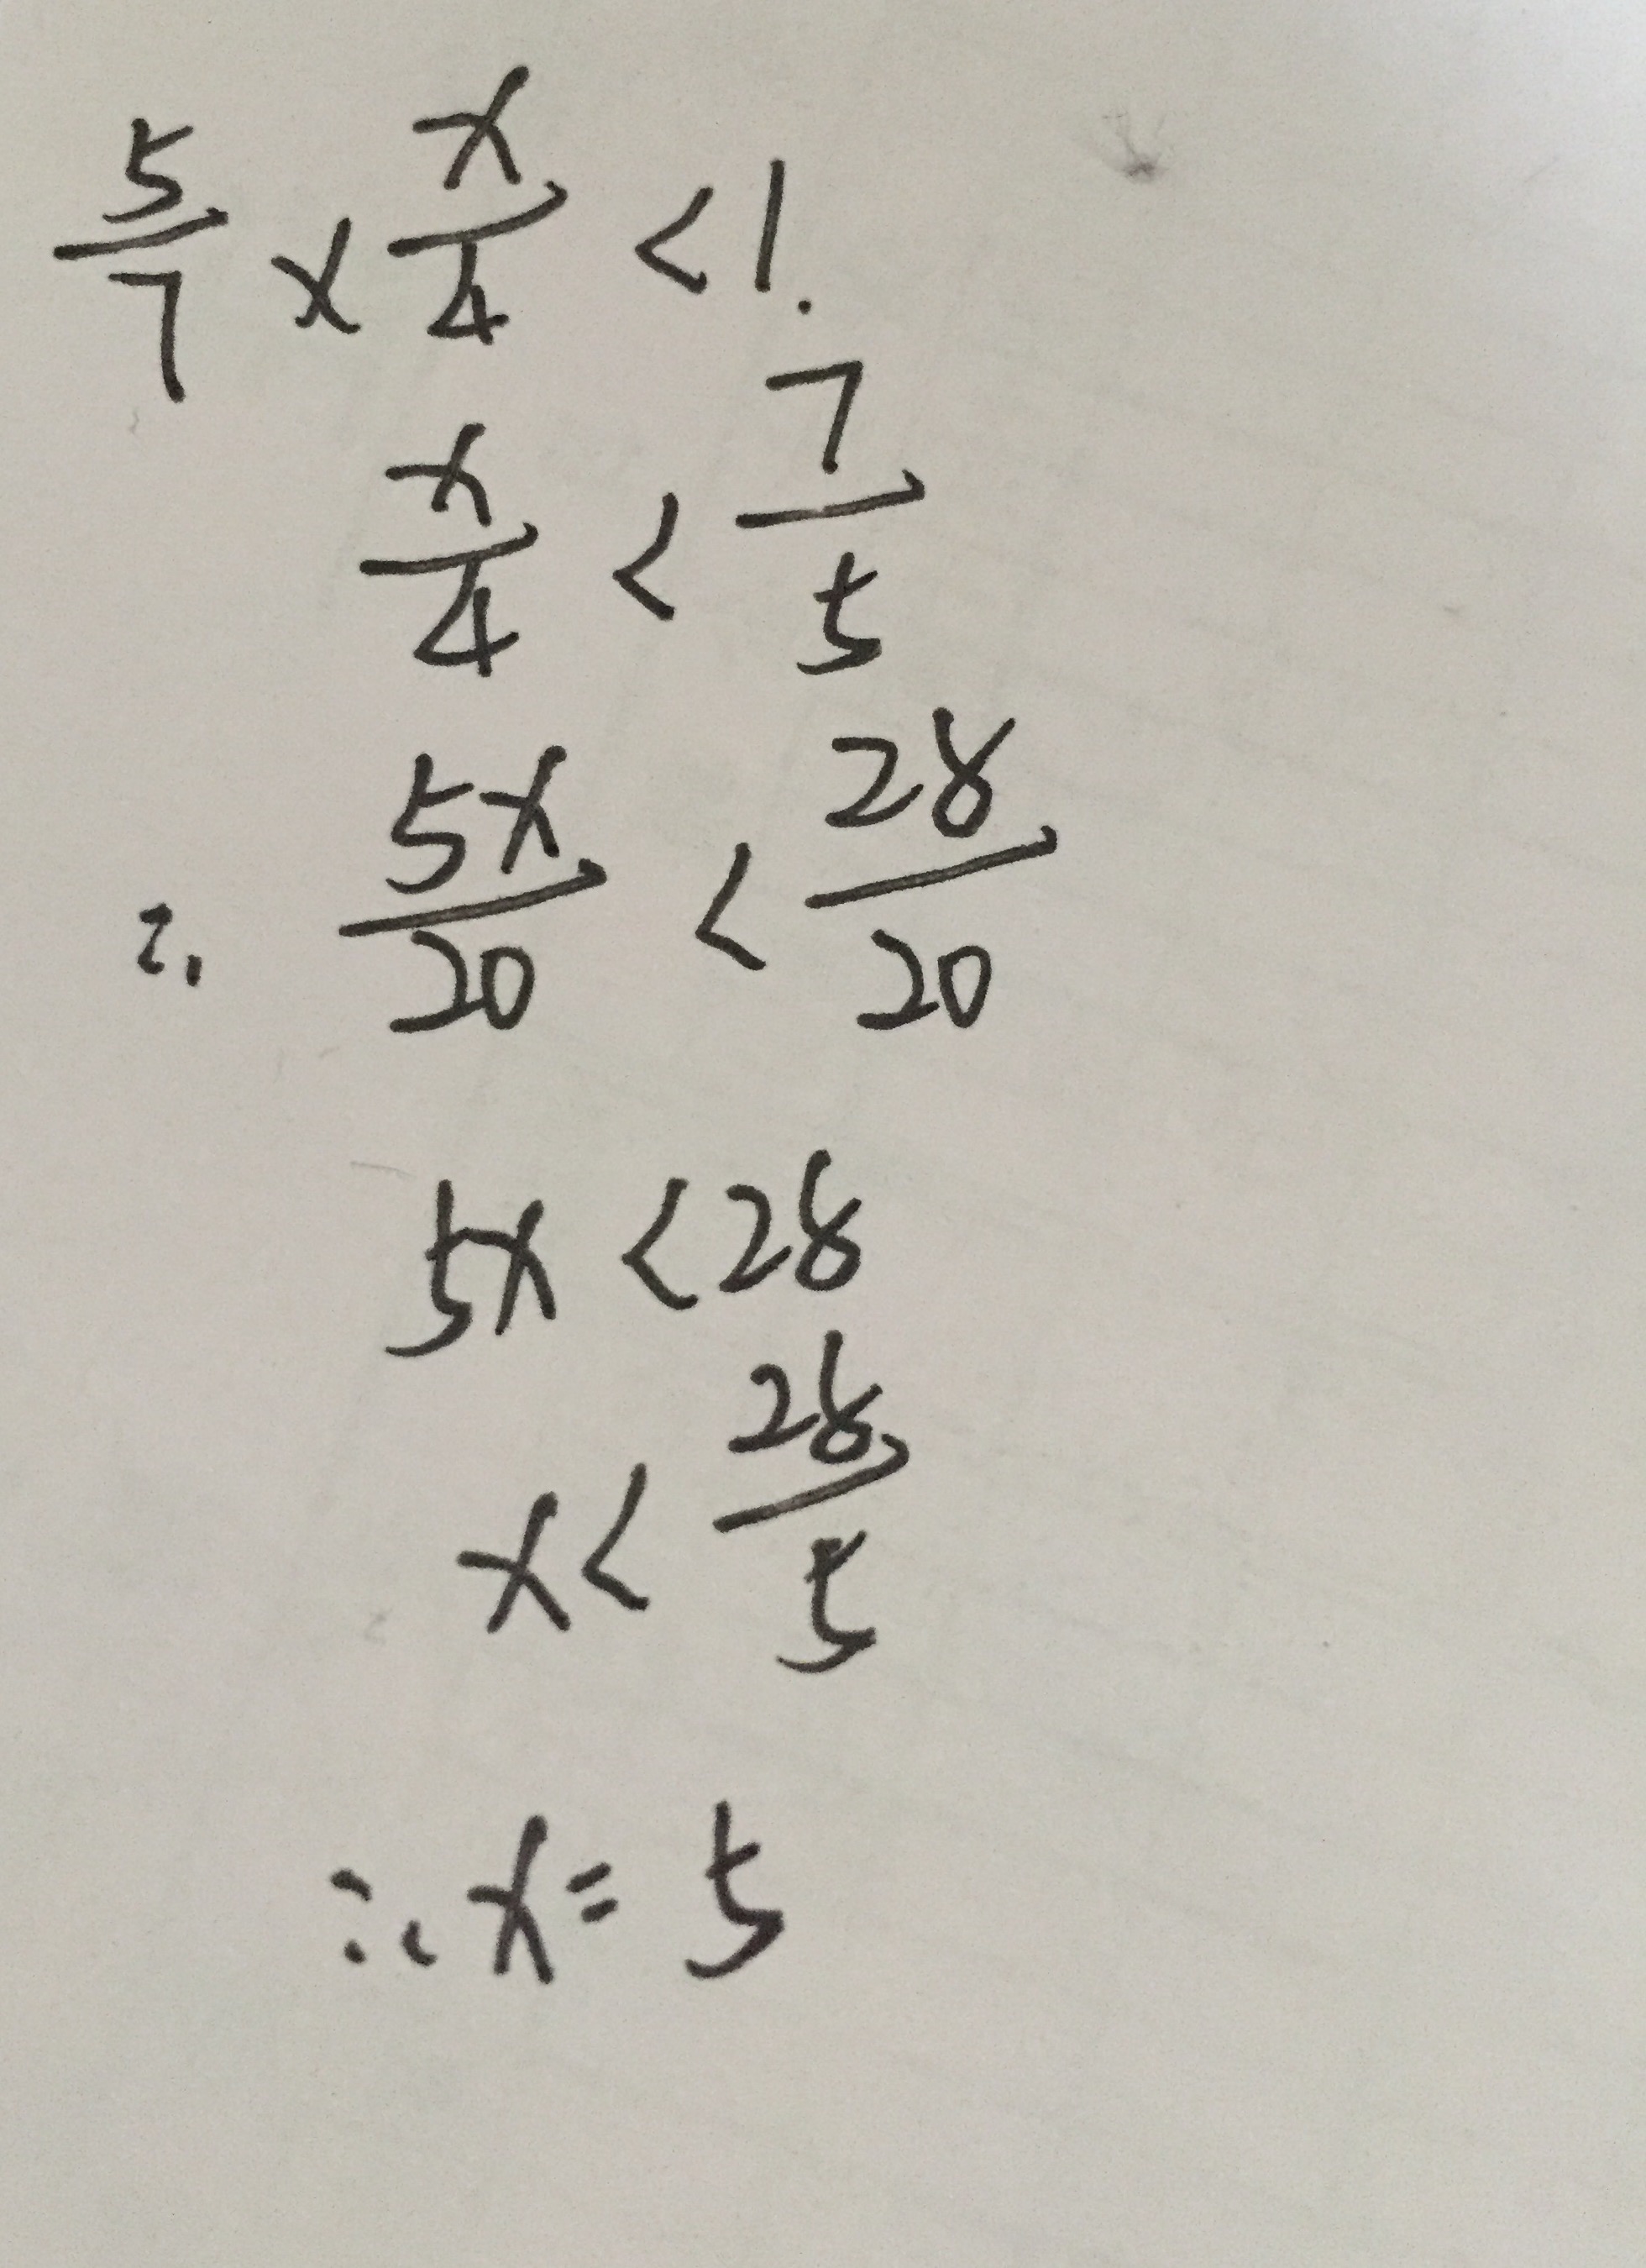 5/7 × x/4 < 1.
x/4 < 7/5
∴ 5x/20 < 28/20
5x < 28
x < 28/5
∴ x = 5